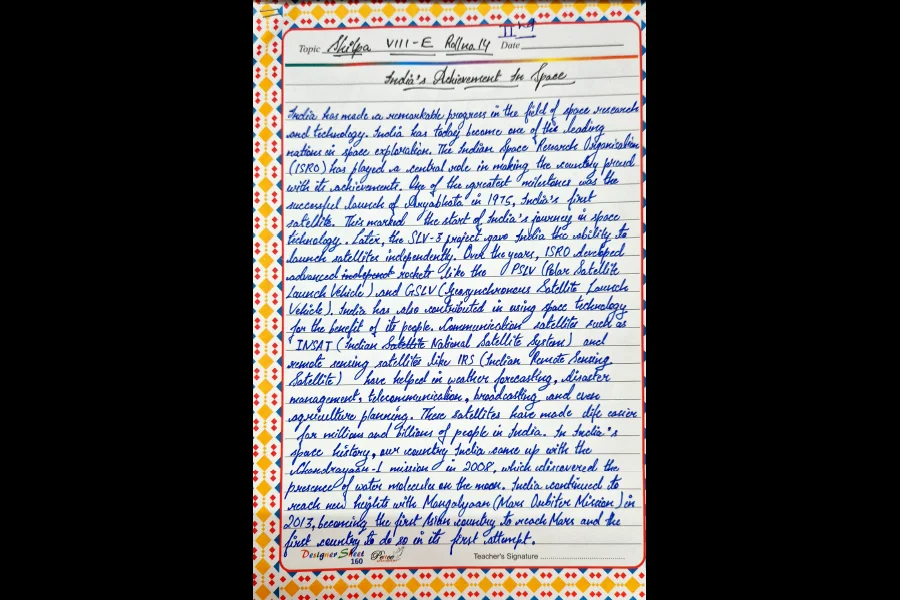 II ng
Topic Shilpa VIII-E Roll no. 14 Date
India's Achievement In Space
India has made a remarkable progress in the field of space research
and technology. India has today become one of this leading
nations in space exploration. The Indian Space Research Organization
(ISRO) has played a central role in making the country proud
with its achievements. One of the greatest milestones was the
successful launch of Aryabhata in 1975, India's first
satellite. This marked the start of India's journey in space
technology. Later, the SLV-3 project gave India the ability to
launch satellites independently. Over the years, ISRO developed
advanced independ rockets like the PSLV (Polar Satellite
Launch Vehicle) and GSLV (Geosynchronous Satellite Launch
Vehicle). India has also contributed in using space technology
for the benefit of its people. Communication satellites such as
INSAT (Indian Satellite National Satellite System) and
remote sensing satellites like IRS (Indian Remote Sensing
Satellite) have helped in weather forecasting, disaster
management, telecommunication, broadcasting and even
agriculture planning. These satellites have made life easier
for millions and billions of people in India. In India's
space history, our country India came up with the
Chandrayaan-1 mission in 2008, which discovered the
presence of water molecules on the moon. India continued to
reach new heights with Mangalyaan (Mars Orbiter Mission) in
2013, becoming the first Asian country to reach Mars and the
first country to do so in its first attempt.
Designer Sheet
160
Teacher's Signature